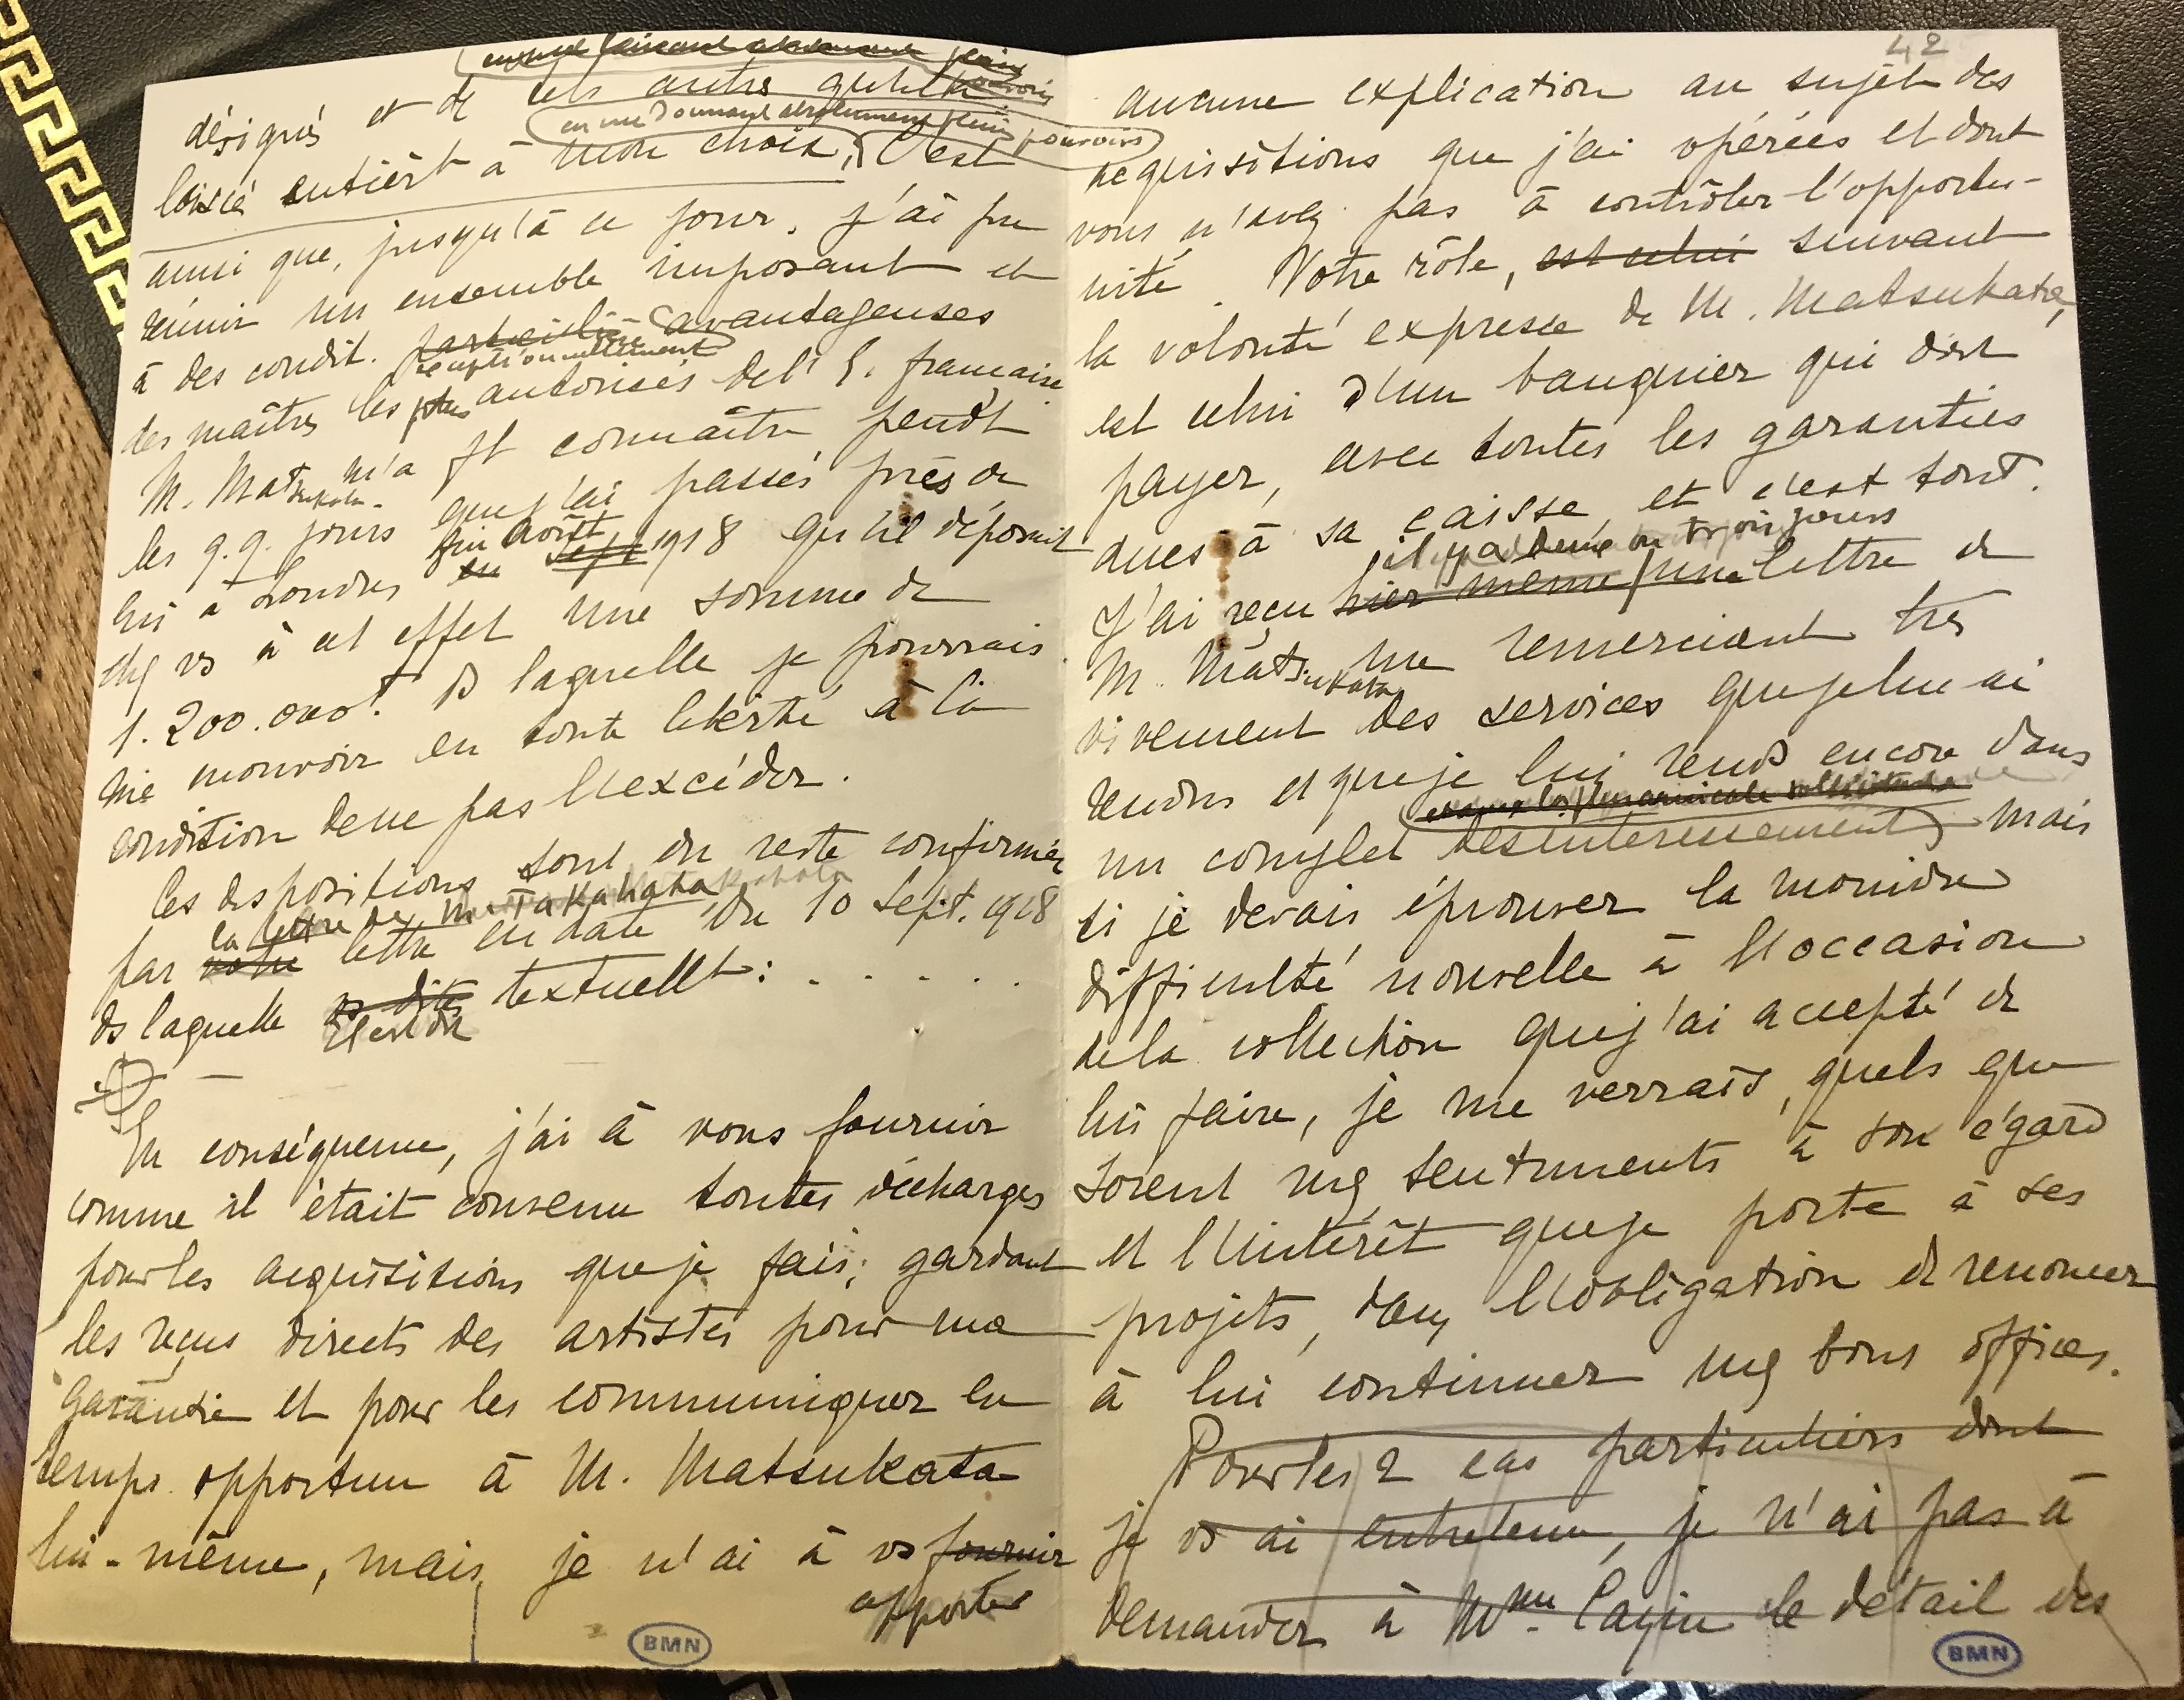 désignés et de tels autres qu'il
en me donnant absolument pleins pouvoirs
laissé entièrt à mon choix, C'est
ainsi que, jusqu'à ce jour, j'ai pu
réunir un ensemble imposant et
à des condit. particulièr avantageuses
exceptionnellement
des maîtres les plus autorisés de l'E. française
M. Matsukata m'a ft connaître pendt
les q.q. jours que j'ai passés près de
lui à Londres en Sept 1918 qu'il déposait
fin Août
chez vs à cet effet une somme de
1.200.000f. ds laquelle je pourrais
me mouvoir en toute liberté à la
condition de ne pas l'excéder.
Ces dispositions sont du reste confirmées
la lettre de M. Takahata
par votre lettre en date du 10 Sept. 1918
ds laquelle vs dites textuellt : . . . . .
il est dit
En conséquence, j'ai à vous fournir
comme il était convenu toutes décharges
pour les acquisitions que je fais; gardant
les reçus directs des artistes pour ma
garantie et pour les communiquer en
temps opportun à M. Matsukata
lui-même, mais je n'ai à vs fournir
apporter
42
aucune explication au sujet des
acquisitions que j'ai opérées et dont
vous n'avez pas à contrôler l'opportu-
nité. Votre rôle, est celui suivant
la volonté expresse de M. Matsukata,
est celui d'un banquier qui doit
payer, avec toutes les garanties
dues à sa caisse et c'est tout.
il y a deux ou trois jours
J'ai reçu hier même une lettre de
M. Matsukata me remerciant très
vivement des services que je lui ai
rendus et que je lui rends encore dans
un complet désintéressement mais
si je devais éprouver la moindre
difficulté nouvelle à l'occasion
de la collection que j'ai accepté de
lui faire, je me verrais, quels que
soient mes sentiments à son égard
et l'intérêt que je porte à ses
projets, dans l'obligation de renoncer
à lui continuer mes bons offices.
Pour les 2 cas particuliers dont
je vs ai entretenu, je n'ai pas à
demander à Mme le détail des
BMN
BMN